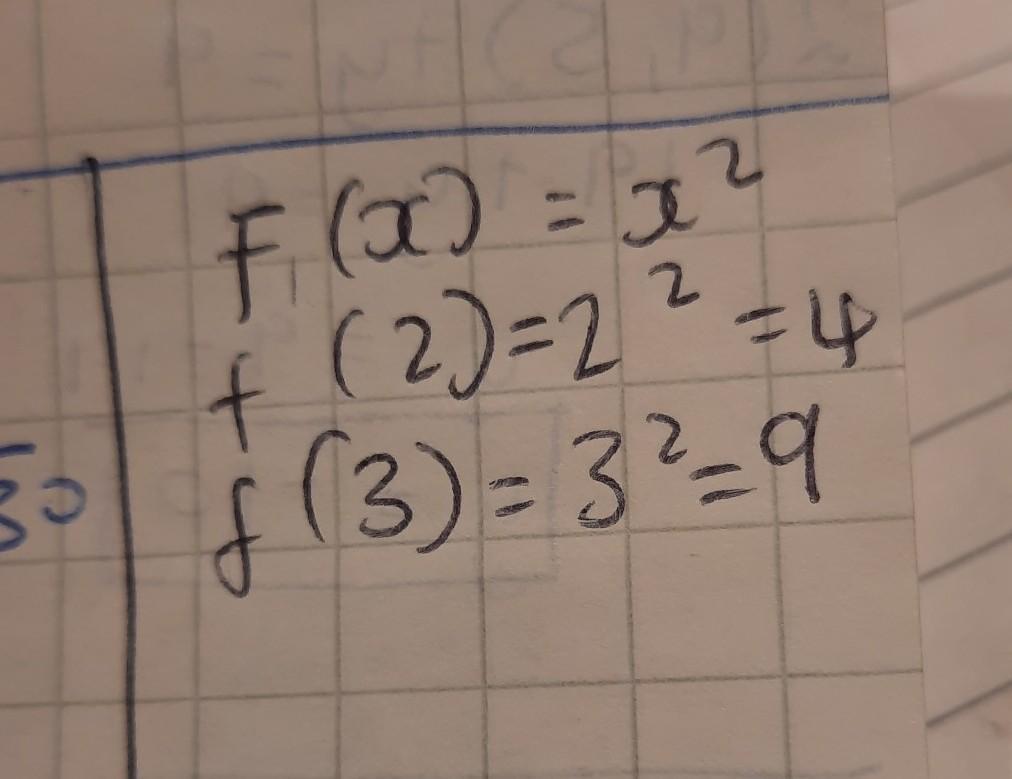 F(x) = x²
f(2) = 2² = 4
f(3) = 3² = 9
50